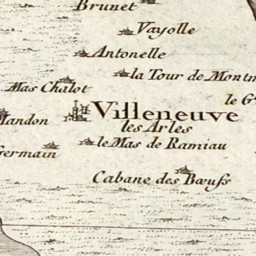 Brunet
Vayolle
Antonelle
la Tour de Montm
Mas Chalot
le G
Villeneuve
les Arles
Mandon
le Mas de Ramiau
Germain
Cabane des Bœufs